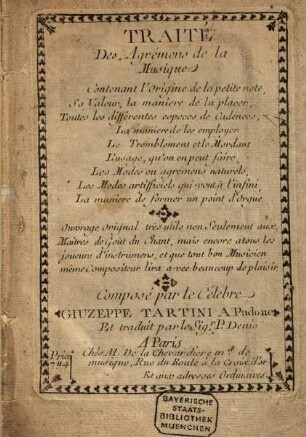 TRAITÉ
Des Agrémens de la
Musique
Contenant l'Origine de la petite note,
Sa Valeur, la maniere de la placer,
Toutes les différentes especes de Cadences,
La maniere de les employer
Le Tremblement et le Mordant
L'usage, qu'on en peut faire,
Les Modes ou agrémens naturels,
Les Modes artifficiels qui vont à l'infini
La maniere de former un point d'Orgue
Ouvrage Original très utile non Seulement aux,
Maîtres de Goût du Chant, mais encore a tous les
joueurs d'instrumens, et que tout bon Musicien
même Compositeur lira avec beaucoup de plaisir.
Composé par le Célebre
GIUZEPPE TARTINI A Padone
Et traduit par le Sigr. P. Denis
A Paris
Chés M. De la Chevardiere md. de
musique, Rue du Roule à la Croix d'or
Et aux adresses Ordinaires.
Prix
BAYERISCHE
STAATS-
BIBLIOTHEK
MUENCHEN